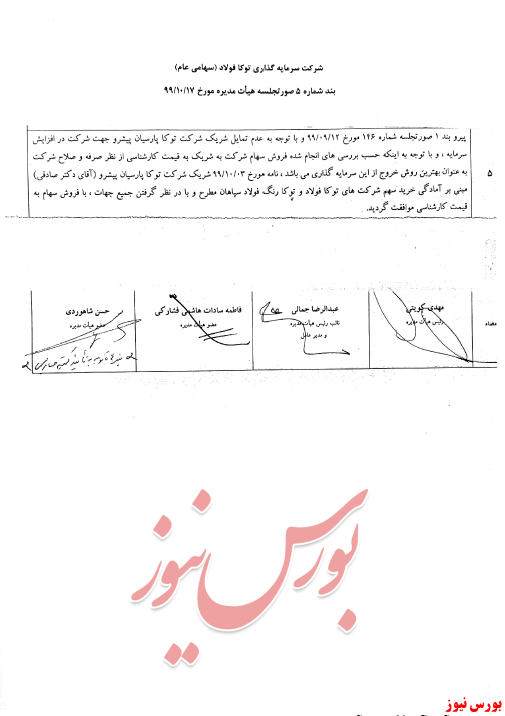 شرکت سرمایه گذاری توکا فولاد (سهامی عام)
بند شماره ۵ صورتجلسه هیأت مدیره مورخ ۹۹/۱۰/۱۷
پیرو بند ۱ صورتجلسه شماره ۱۴۶ مورخ ۹۹/۰۹/۱۲ و با توجه به عدم تمایل شریک شرکت توکا پارسیان پیشرو جهت شرکت در افزایش
سرمایه ، و با توجه به اینکه حسب بررسی های انجام شده فروش سهام شرکت به شریک به قیمت کارشناسی از نظر صرفه و صلاح شرکت
۵ به عنوان بهترین روش خروج از این سرمایه گذاری می باشد ، نامه مورخ ۹۹/۱۰/۰۳ شریک شرکت توکا پارسیان پیشرو (آقای دکتر صادقی)
مبنی بر آمادگی خرید سهم شرکت های توکا فولاد و توکا رنگ، فولاد سپاهان مطرح و با در نظر گرفتن جمیع جهات ، با فروش سهام به
قیمت کارشناسی موافقت گردید.
امضاء
مهدی کویتی
رئیس هیأت مدیره
عبدالرضا جمالی
نائب رئیس هیأت مدیره
و مدیر عامل
فاطمه سادات هاشمی فشارکی
عضو هیأت مدیره
حسن شاهوردی
عضو هیأت مدیره
بورس نیوز
بورس نیوز